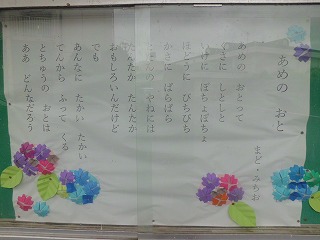 あめの おと
まど・みちお
あめの おとって
くさに しとしと
いけに ぽちょぽちょ
ほどうに ぴちぴち
かさに ぱらぱら
やねには
たんたか たんたか
おもしろいんだけど
でも
あんなに たかい たかい
てんから ふって くる
とちゅうの おとは
ああ どんなだろう